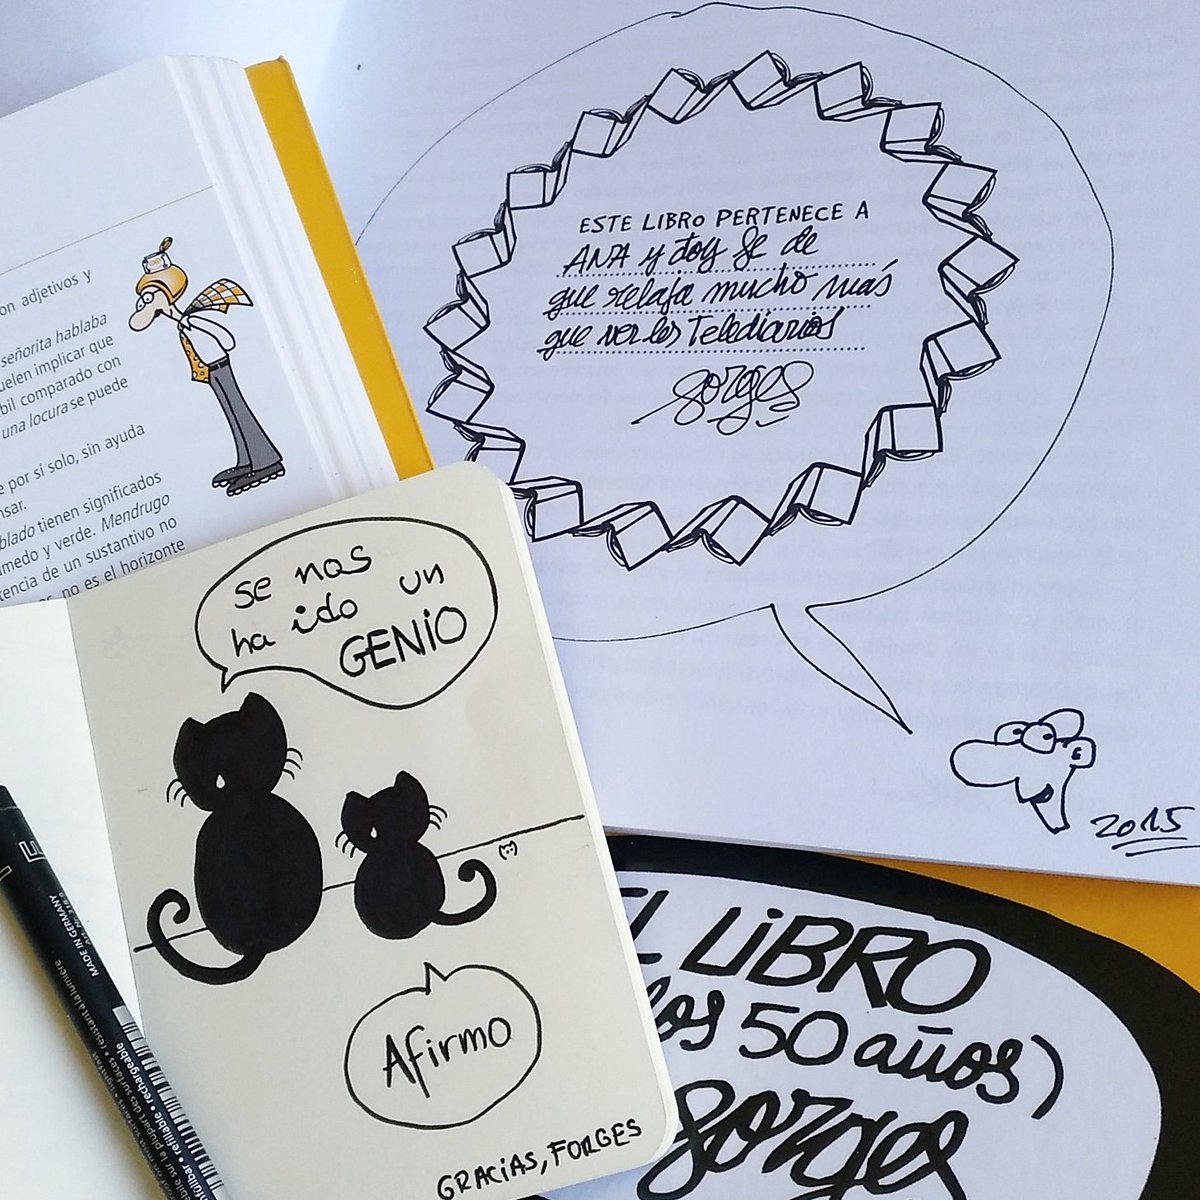 on adjetivos y
señorita hablaba
uelen implicar que
bil comparado con
una locura se puede
e por sí solo, sin ayuda
nsar.
blado tienen significados
medo y verde. Mendrugo
tencia de un sustantivo no
no es el horizonte
ESTE LIBRO PERTENECE A
ANA y doy fe de
que relaja mucho más
que ver los Telediarios
forges
2015
se nos
ha ido un
GENIO
Afirmo
GRACIAS, FORGES
EL LIBRO
los 50 años)
forges
MADE IN GERMANY
résistant à la lumière
sur la plupart des surfaces • lightfast
refillable • rechargeable